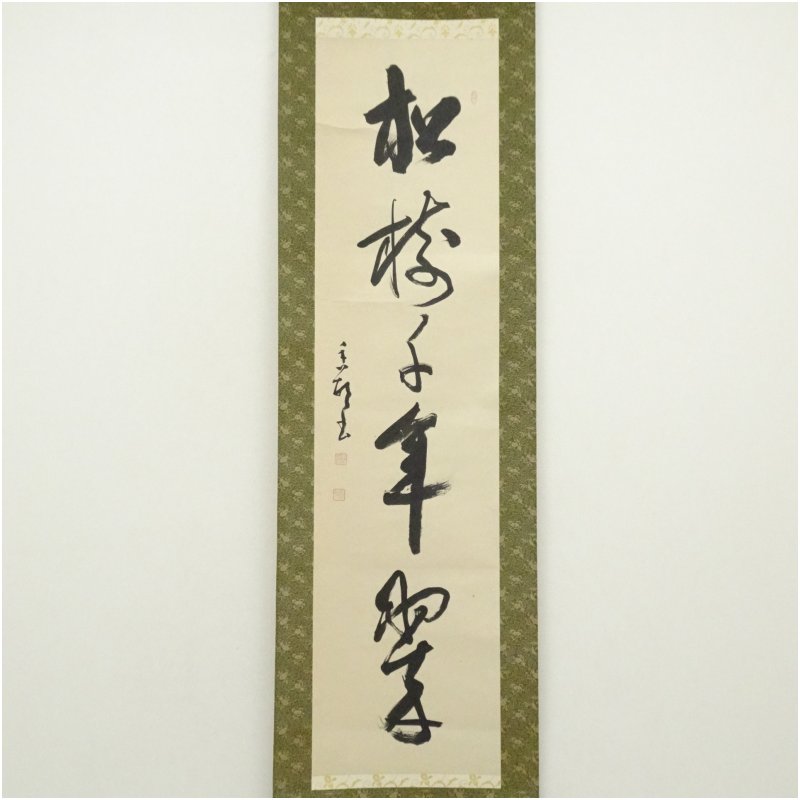 松樹千年翠
書